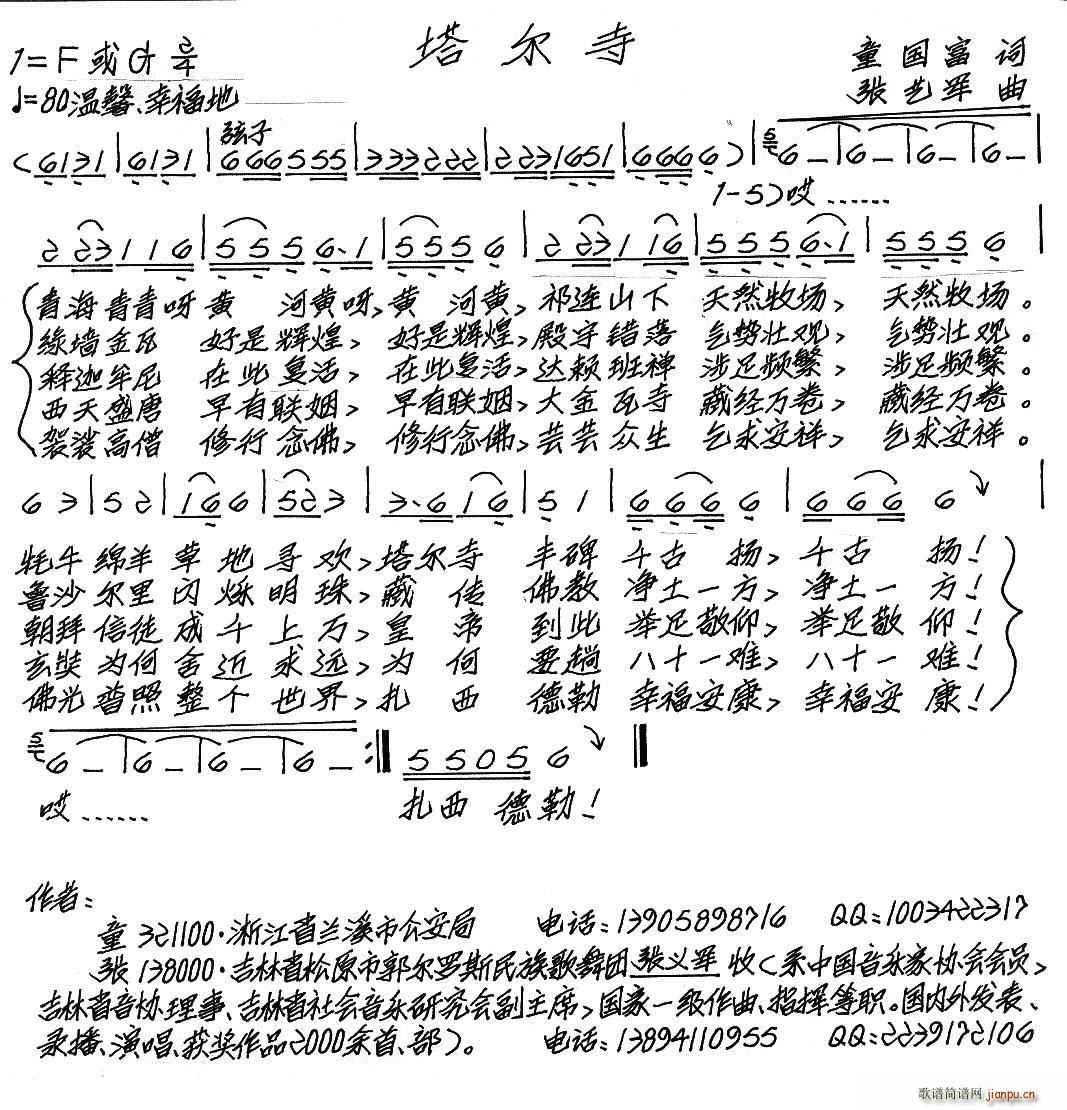 塔尔寺
1=F或G 2/4
童国富 词
♩=80温馨、幸福地
张艺军 曲
弦子
(6131|6131|666555|333222|2231651|6666)|5/7 6–|6–|6–|6–|
1-5)哎……
2 23116|5556·1|5556|223116|5556·1|5556|
青海青青呀黄 河黄呀,黄 河黄,祁连山下 天然牧场, 天然牧场。
绿墙金瓦 好是辉煌, 好是辉煌,殿宇错落 气势壮观, 气势壮观。
释迦牟尼 在此复活, 在此复活,达赖班禅 涉足频繁, 涉足频繁。
西天盛唐 早有联姻, 早有联姻,大金瓦寺 藏经万卷, 藏经万卷。
袈裟高僧 修行念佛, 修行念佛,芸芸众生 乞求安祥, 乞求安祥。
6 3|5 2|1 6 6|5 2 3|3·6 1 6|5 1|6 6 6 6|6 6 6 6|
牦牛绵羊草地寻欢,塔尔寺 丰碑 千古 扬, 千古 扬!
鲁沙尔里闪烁明珠,藏 传 佛教 净土一方,净土一 方!
朝拜信徒成千上万,皇 帝 到此 举足敬仰,举足敬 仰!
玄奘为何舍近求远,为 何 要趟 八十一难,八十一 难!
佛光普照整个世界,扎 西 德勒 幸福安康,幸福安 康!
6–|6–|6–|6–:‖5 5 0 5 6‖
哎…… 扎西 德勒!
作者:
童 321100·浙江省兰溪市公安局 电话:13905898716 QQ:1003422317
张 138000·吉林省松原市郭尔罗斯民族歌舞团 张义军 收(系中国音乐家协会会员,
吉林省音协理事、吉林省社会音乐研究会副主席,国家一级作曲、指挥等职。国内外发表、
录播、演唱、获奖作品2000余首、部)。 电话:13894110955 QQ:2239172106
歌谱简谱网 jianpu.cn